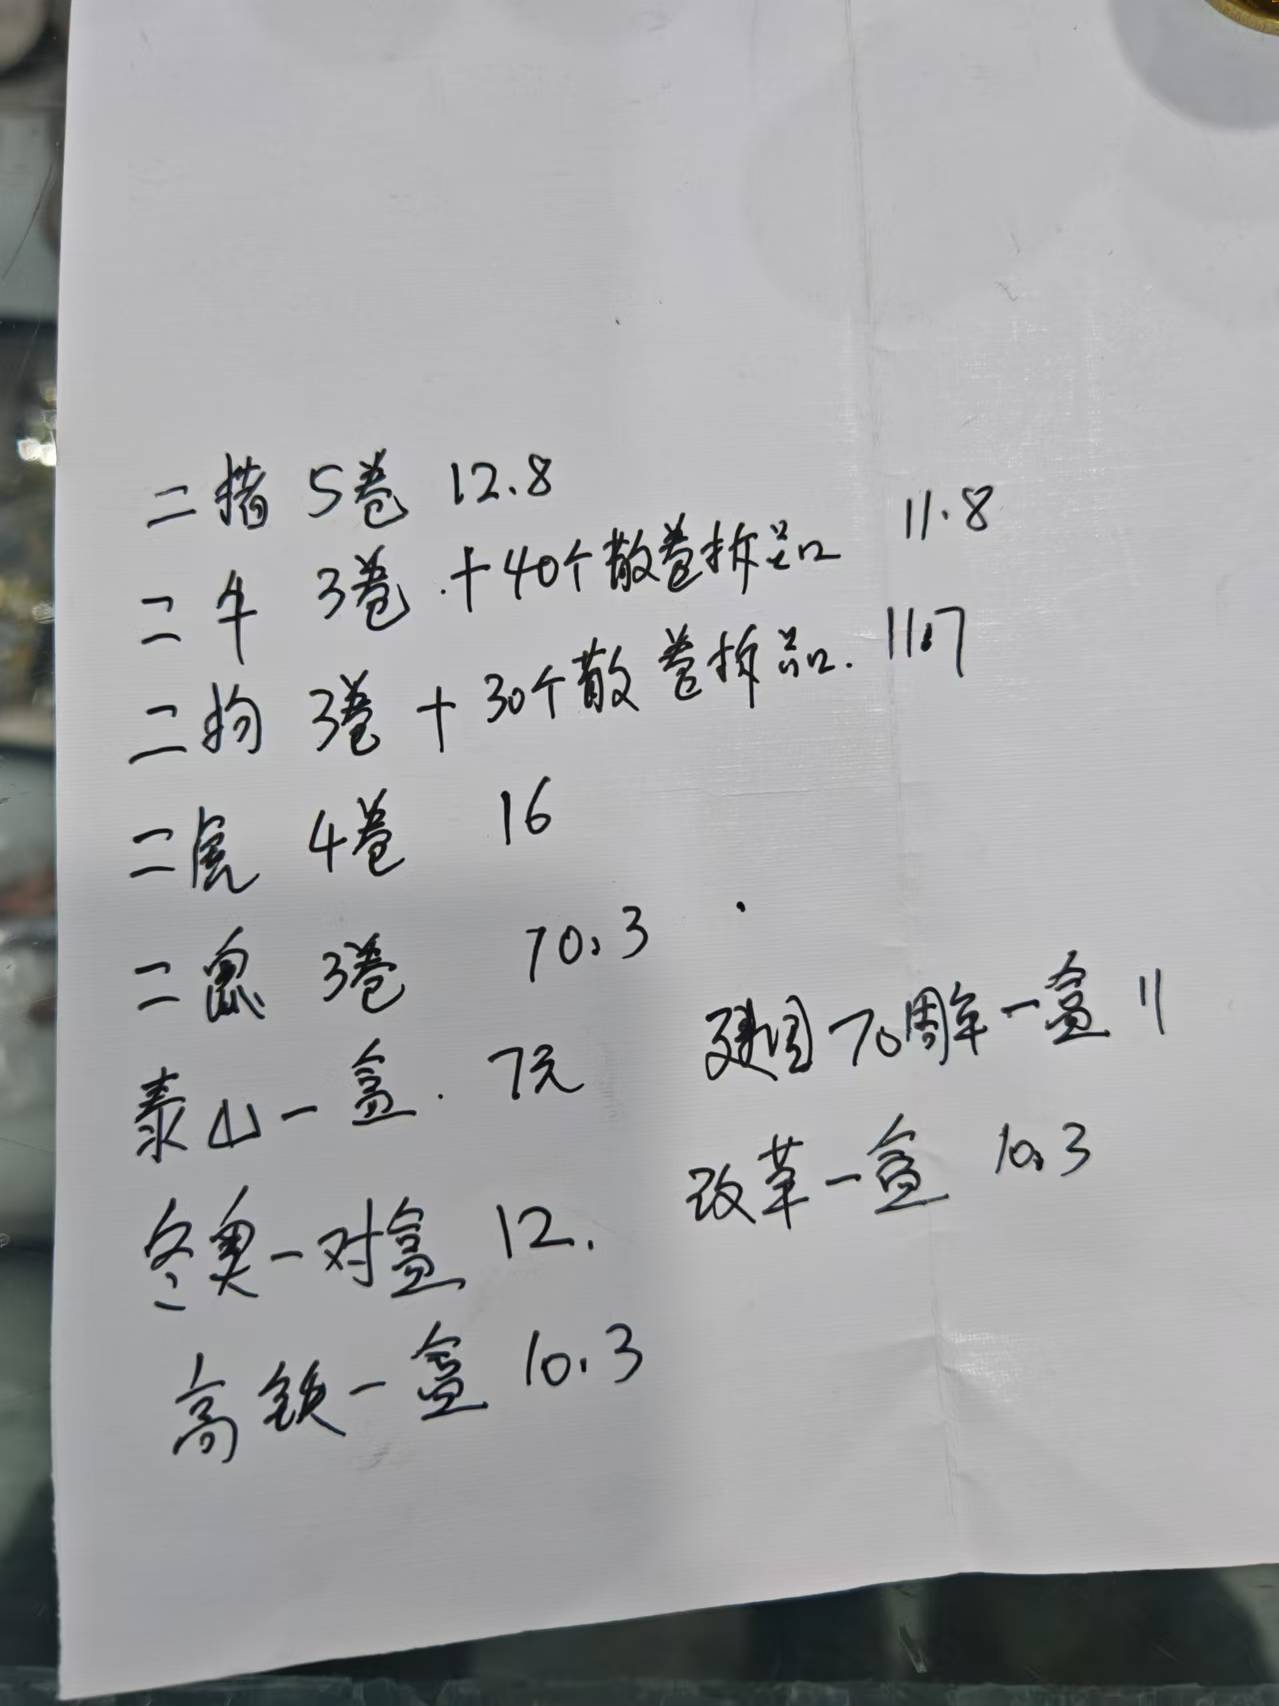 二猪 5卷 12.8
二牛 3卷.+40个散卷拆品 11.8
二狗 3卷+30个散卷拆品. 11.7
二虎 4卷 16
二鼠 3卷 70.3
泰山一盒. 7元
建国70周年一盒 11
冬奥一对盒 12.
改革一盒 10.3
高铁一盒 10.3